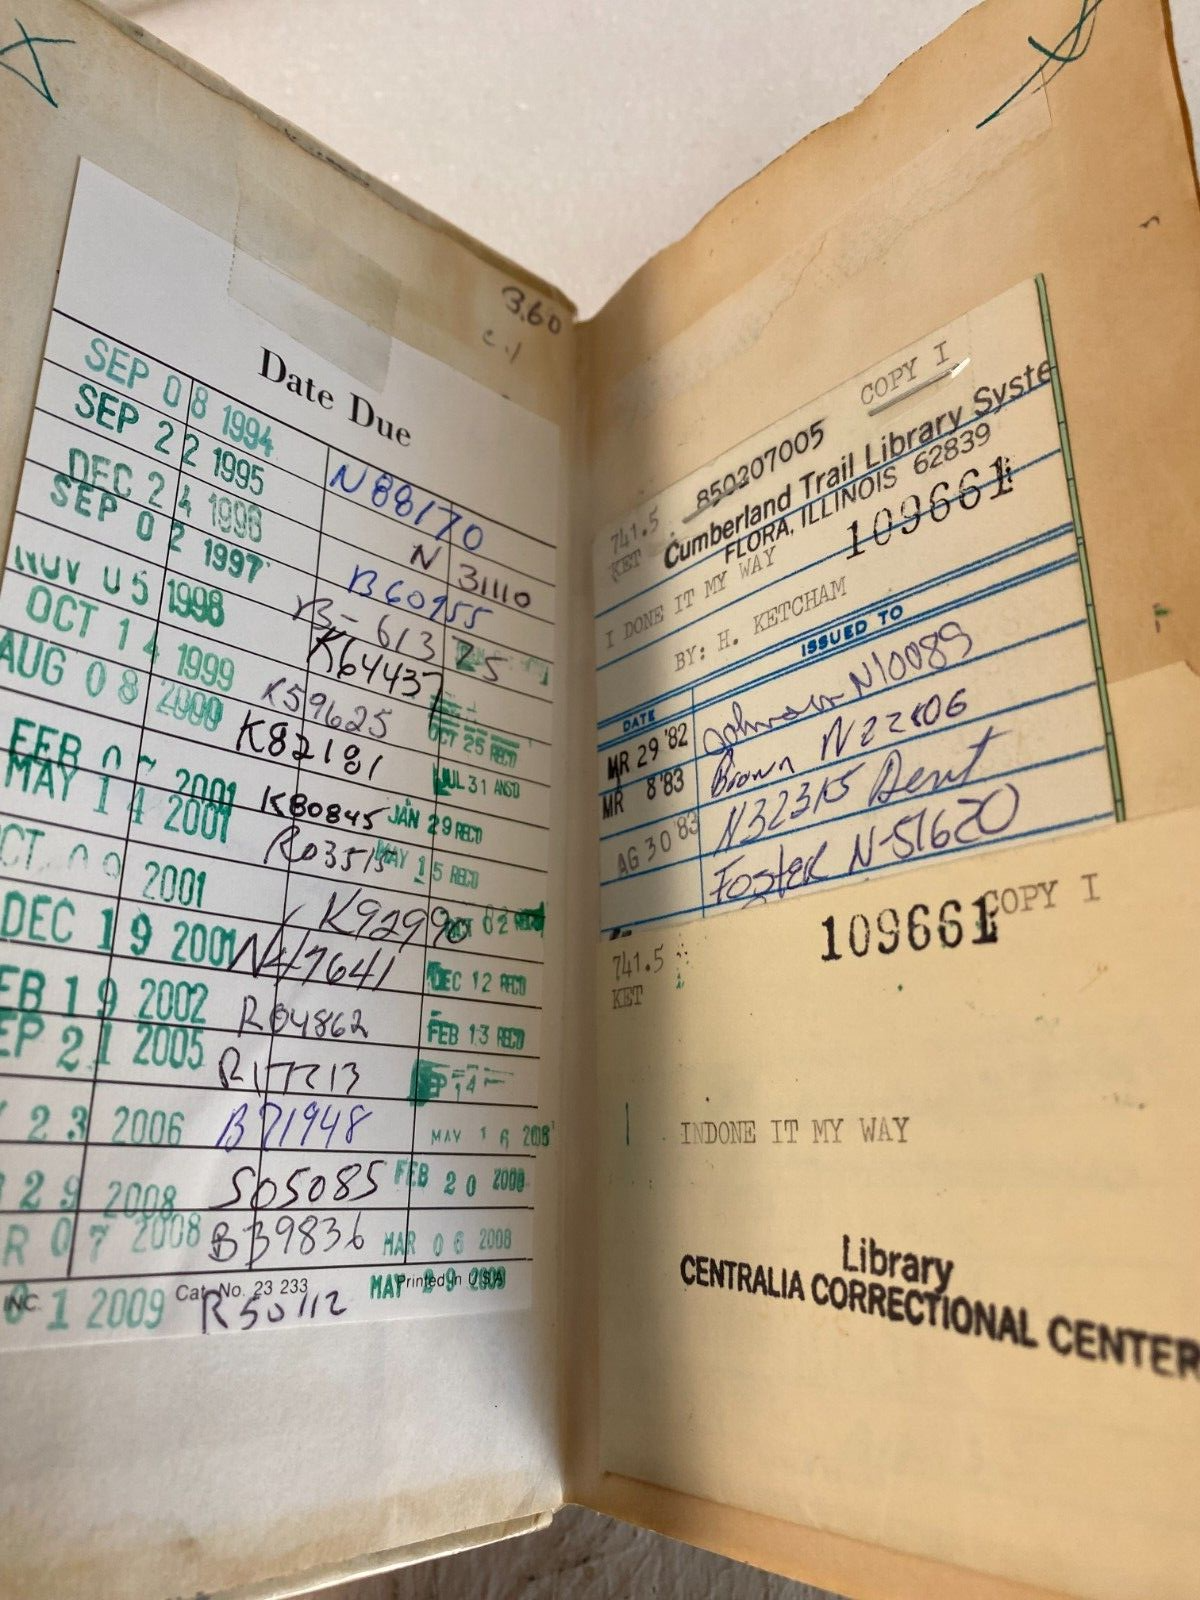 3.60
c.1
Date Due
SEP 08 1994 N88170
SEP 22 1995 N 31110
DEC 24 1996 B60955
SEP 02 1997 B-613 25
NOV 05 1998 K64437
OCT 14 1999 K59625 OCT 25 RECD
AUG 08 2000 K82181 JUL 31 ANSD
FEB 2001 K80845 JAN 29 RECD
MAY 14 2001 R03515 MAY 15 RECD
2001 K92990 02
DEC 19 2001 N47641 DEC 12 RECD
FEB 19 2002 R04862 FEB 13 RECD
SEP 21 2005 R17213 14
23 2006 B71948 MAY 16
29 2008 S05085 FEB 20 2008
R 07 2008 B39836 MAR 06 2008
INC. Cat. No. 23 233 Printed in U.S.A.
01 2009 R50112 MAY 29 2009
COPY I
850207005
741.5 Cumberland Trail Library Syste
KET FLORA, ILLINOIS 62839
109661
I DONE IT MY WAY
BY: H. KETCHAM
DATE ISSUED TO
MR 29 '82 Johnson N10089
MR 8 '83 Brown N22806
AG 30 '83 N32315 Dent
Foster N-51620
109661 COPY I
741.5
KET
INDONE IT MY WAY
Library
CENTRALIA CORRECTIONAL CENTER